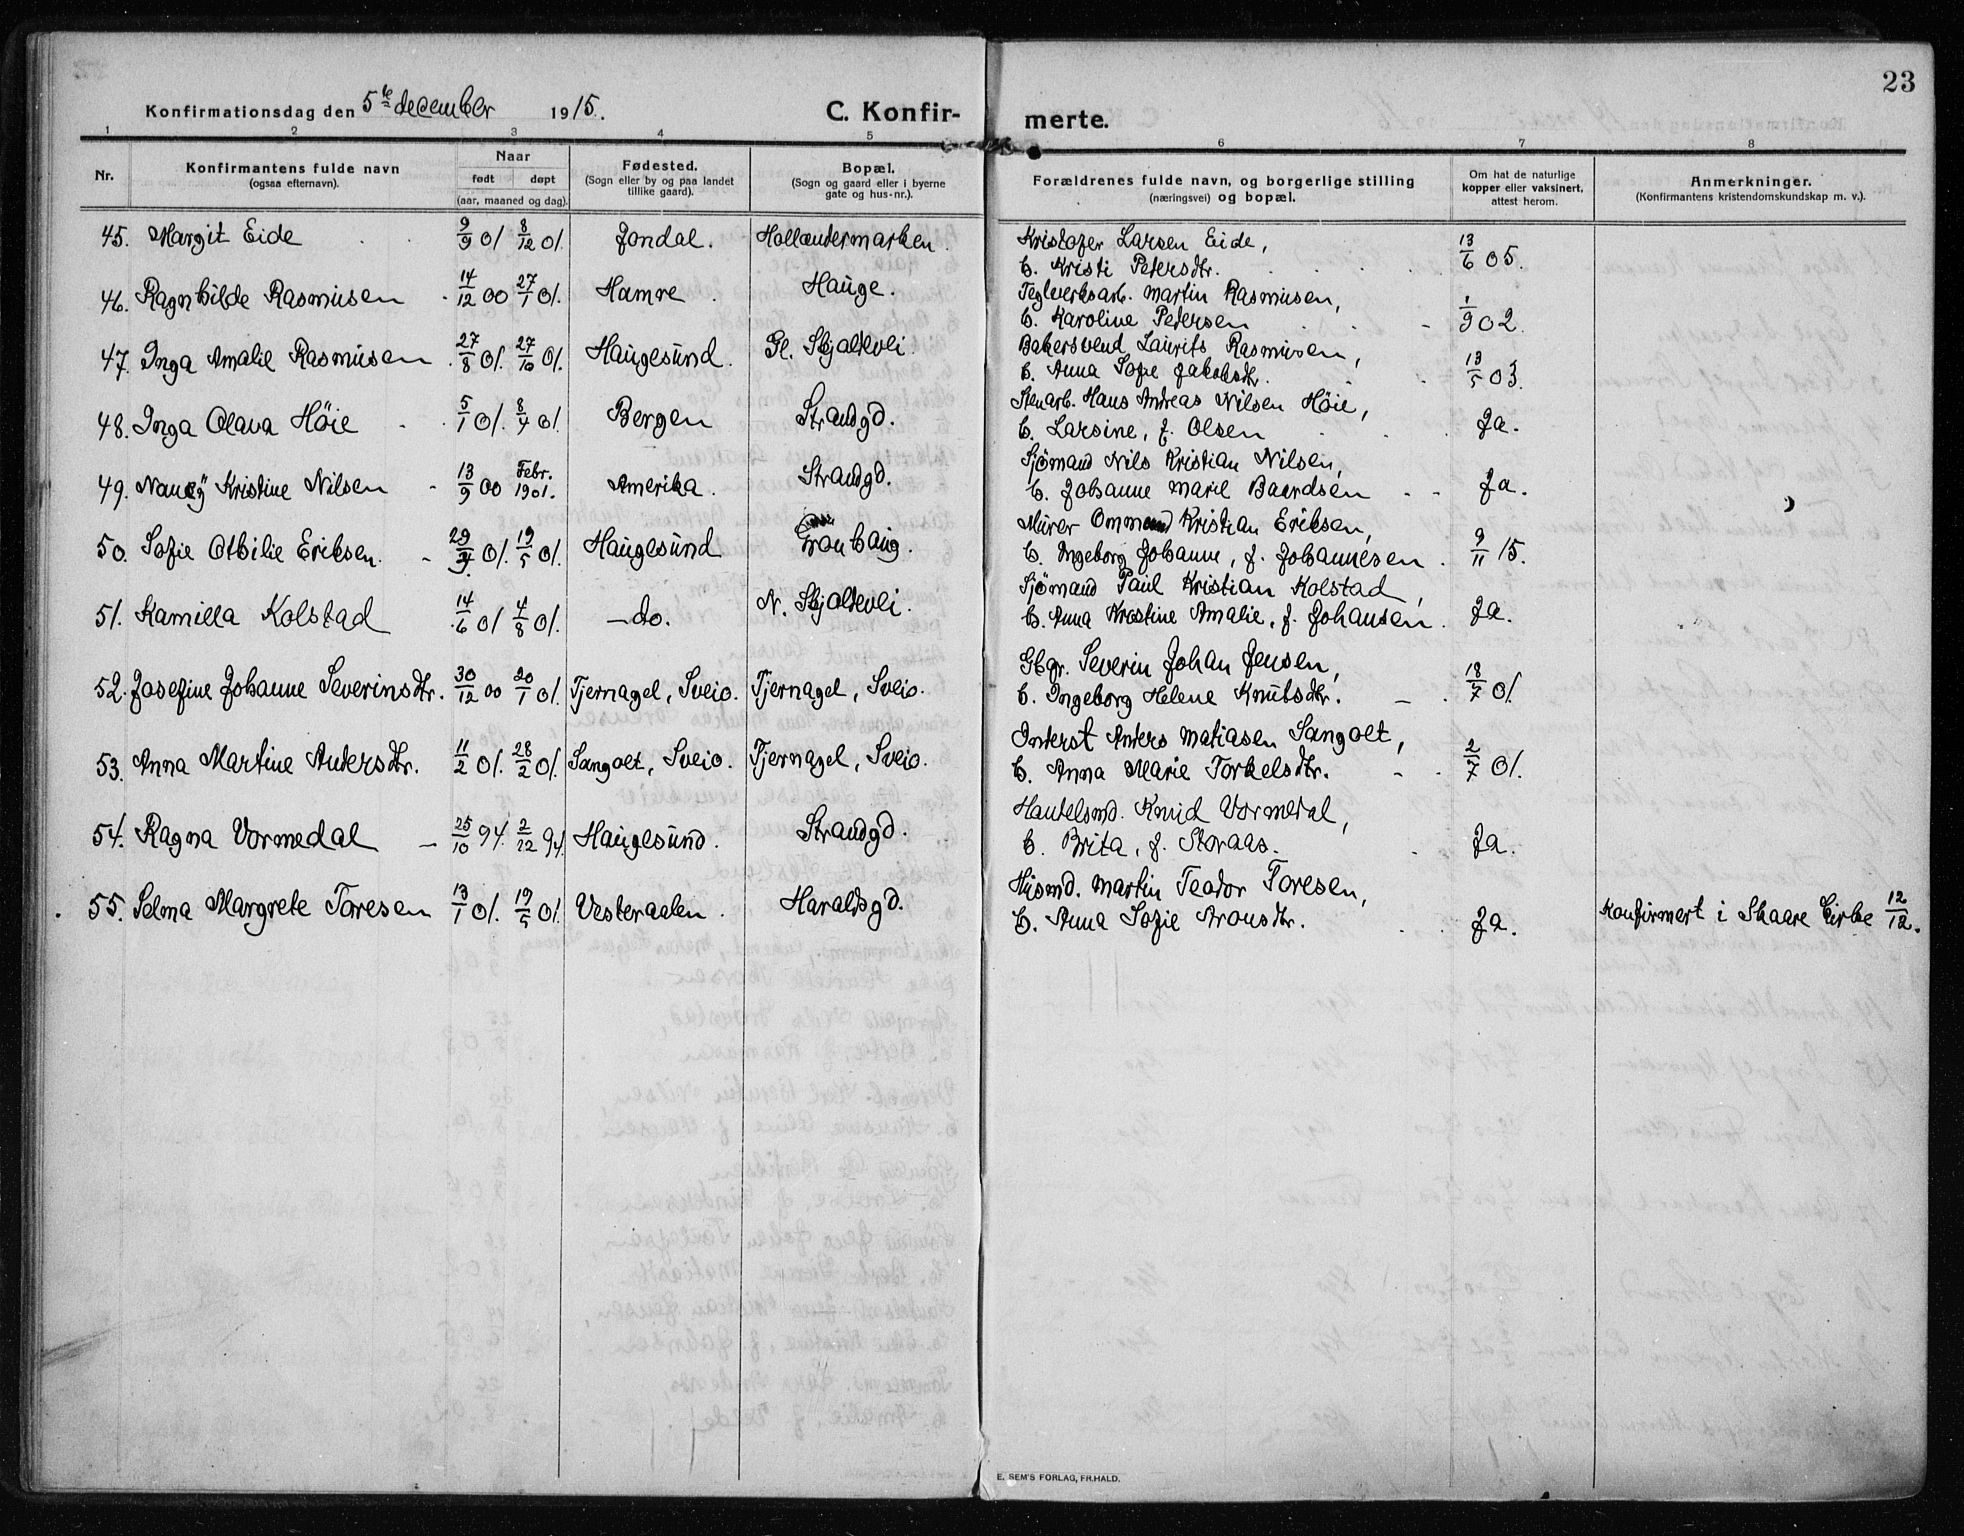 23
Konfirmationsdag den 5te december 1915. C. Konfirmerte.
1 2 3 4 5 6 7 8
Nr. Konfirmantens fulde navn (ogsaa efternavn). Naar født døpt (aar, maaned og dag). Fødested. (Sogn eller by og paa landet tillike gaard). Bopæl. (Sogn og gaard eller i byerne gate og hus-nr.). Forældrenes fulde navn, og borgerlige stilling (næringsvei) og bopæl. Om hat de naturlige kopper eller vaksinert, attest herom. Anmerkninger. (Konfirmantens kristendomskundskap m. v.).
45. Margit Eide 9/9 01 8/12 01. Jondal. Hollendermarken. Kristofer Larsen Eide, 13/6 05.
h. Kristi Petersdtr.
46. Ragnhilde Rasmusen 14/12 00 27/1 01. Hamre. Hauge. Teglverksarb. Martin Rasmusen, 1/9 02.
h. Karoline Petersen
47. Inga Amalie Rasmusen 27/8 01. 27/10 01. Haugesund. Gl. Skjoldevei. Bakersvend Laurits Rasmusen, 13/5 03.
h. Anna Sofie Jakobsdtr.
48. Inga Olava Höie 5/1 01. 8/4 01. Bergen Strandgd. Stenarb. Hans Andreas Nilsen Höie, Ja.
h. Larsine, f. Olsen
49. Nancy Kristine Nilsen 13/9 00 Febr. 1901. Amerika. Strandgd. Sjömand Nils Kristian Nilsen, Ja.
h. Johanne Marie Baardsen
50. Sofie Othilie Eriksen. 01. 19/5 01. Haugesund Murer Ommund Kristian Eriksen, 9/11 15.
h. Ingeborg Johanne, f. Johannesen
51. Kamilla Kolstad 14/6 01 4/8 01. — do. N. Skjoldevei. Sjömand Paul Kristian Kolstad, Ja.
h. Anna Kristine Amalie, f. Johansen.
52. Josefine Johanne Severinsdtr. 30/12 00 20/1 01. Tjernagel, Sveio. Tjernagel, Sveio. Gbgr. Severin Johan Jensen, 18/7 01.
h. Ingeborg Helene Knutsdtr.
53. Anna Martine Andersdtr. 11/2 01. 28/2 01. Sangolt, Sveio. Tjernagel, Sveio. Inderst Anders Matiasen Sangolt, 2/7 01.
h. Anna Marie Torkelsdtr.
54. Ragna Vormedal 25/10 94. 2/12 94. Haugesund. Strandgd. Handelsmd. Knud Vormedal, Ja.
h. Brita, f. Storaas.
55. Selma Margrete Toresen 13/1 01. 19/5 01. Vesteraalen. Haraldsgd. Husmd. Martin Teodor Toresen, Ja. Konfirmert i Skaare kirke 12/12.
h. Anna Sofie Aronsdtr.
E. SEM'S FORLAG, FR.HALD.